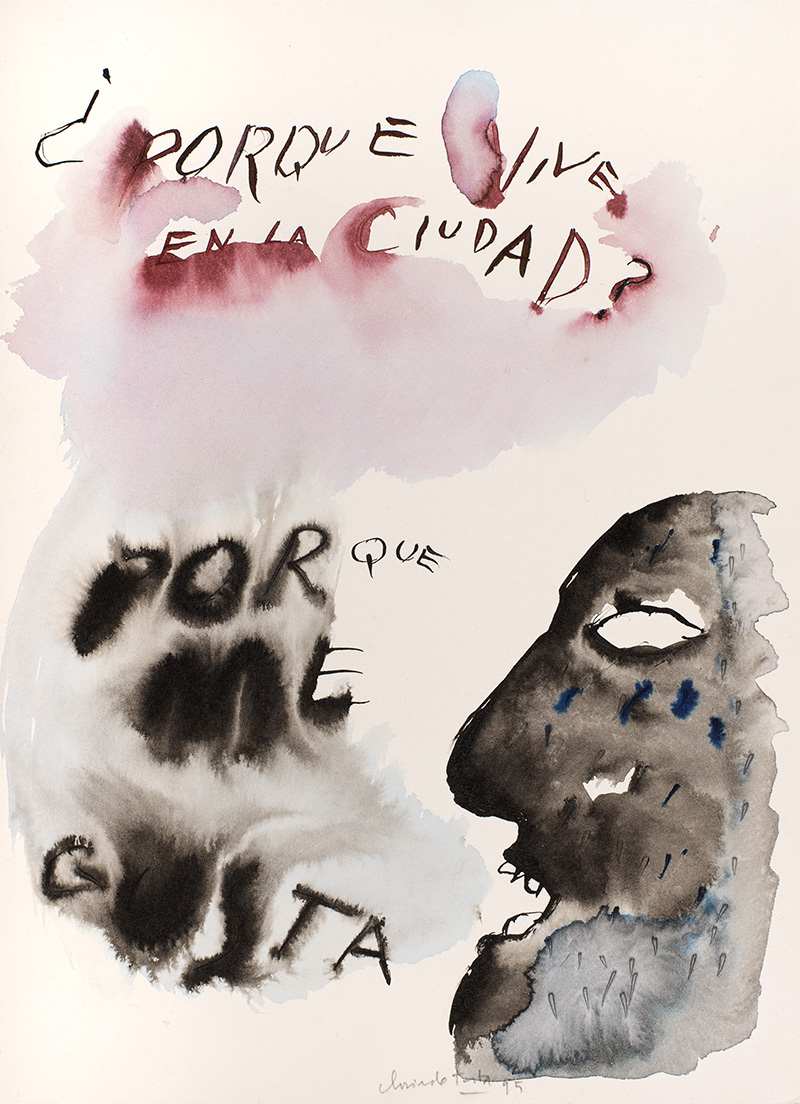 ¿PORQUE VIVE
EN LA CIUDAD?
POR QUE
ME
GUSTA
95